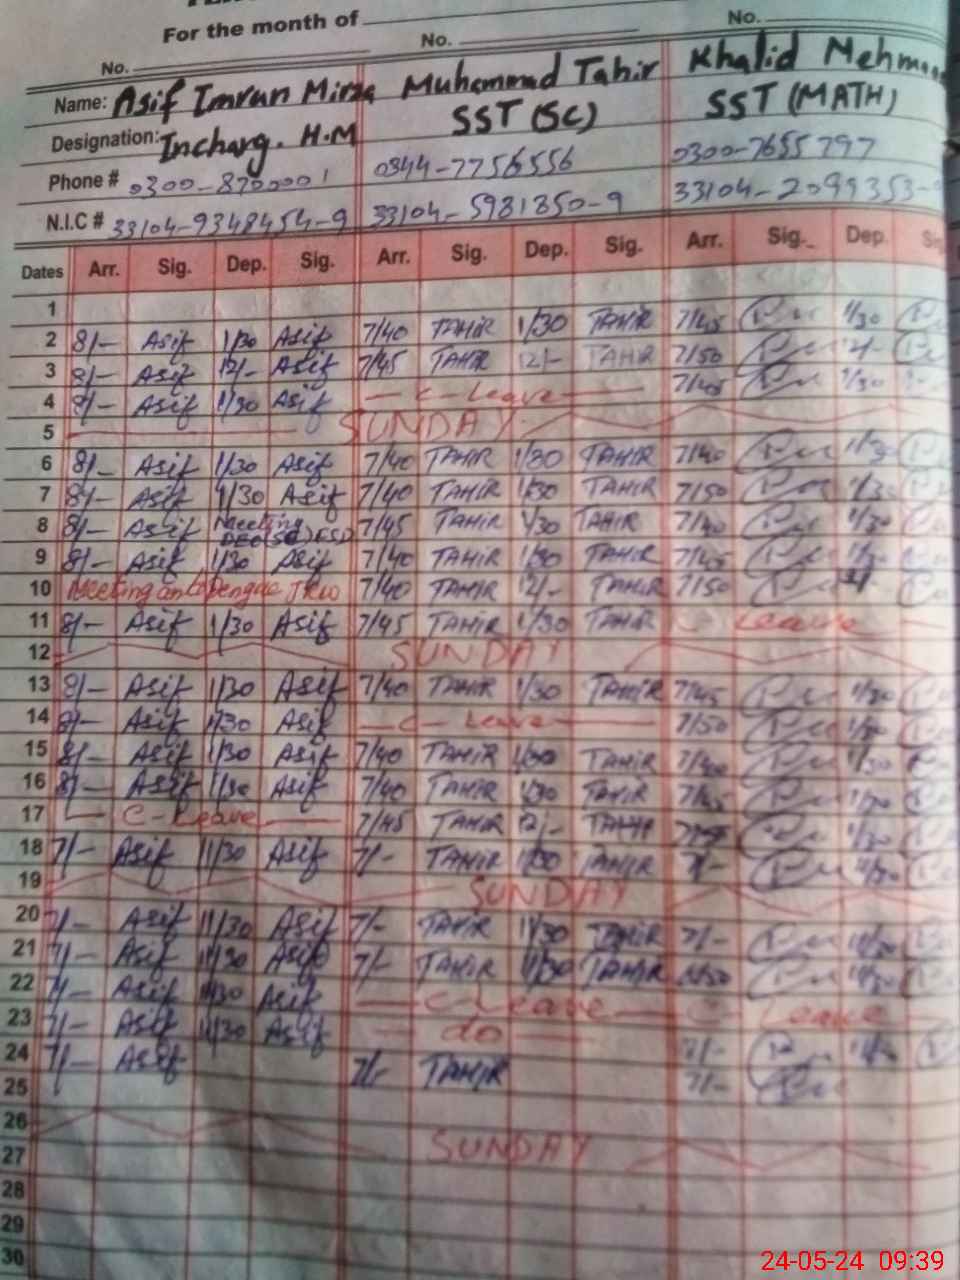 For the month of
No. No. No.
Name: Asif Imran Mirza Muhammad Tahir Khalid Mehmood
Designation: Incharg. H.M SST (SC) SST (MATH)
Phone # 0344-7756556 0300-7655797
N.I.C # 33104-9348454-9 33104-5981850-9 33104-2099353-
Dates Arr. Sig. Dep. Sig. Arr. Sig. Dep. Sig. Arr. Sig. Dep.
1
2 8/- Asif 1/30 Asif 7/40 TAHIR 1/30 TAHIR 7/45 1/30
3 8/- Asif 12/- Asif 7/45 TAHIR 12/- TAHIR 7/50 12/-
4 8/- Asif 1/30 Asif C-Leave 7/45 1/30
5 SUNDAY
6 8/- Asif 1/30 Asif 7/40 TAHIR 1/30 TAHIR 7/40 1/30
7 8/- Asif 1/30 Asif 7/40 TAHIR 1/30 TAHIR 7/50 1/30
8 8/- Asif Meeting 7/45 TAHIR 1/30 TAHIR 7/40 1/30
9 8/- Asif 1/30 Asif 7/40 TAHIR 1/30 TAHIR 7/45 1/30
10 Meeting on Dengue 7/40 TAHIR 12/- TAHIR 7/50
11 8/- Asif 1/30 Asif 7/45 TAHIR 1/30 TAHIR Leave
12 SUNDAY
13 8/- Asif 1/30 Asif 7/40 TAHIR 1/30 TAHIR 7/45 1/30
14 8/- Asif 1/30 Asif C-Leave 7/50 1/30
15 8/- Asif 1/30 Asif 7/40 TAHIR 1/30 TAHIR 7/40 1/30
16 8/- Asif 1/30 Asif 7/40 TAHIR 1/30 TAHIR 7/45 1/30
17 C-Leave 7/45 TAHIR 12/- TAHIR 1/30
18 7/- Asif 11/30 Asif 7/- TAHIR 11/30 TAHIR 7/- 11/30
19 SUNDAY
20 7/- Asif 11/30 Asif 7/- TAHIR 11/30 TAHIR 7/- 11/30
21 7/- Asif 11/30 Asif 7/- TAHIR 11/30 TAHIR 11/30
22 7/- Asif 11/30 Asif C-Leave C-Leave
23 7/- Asif 11/30 Asif do 7/-
24 7/- Asif 7/- TAHIR 7/-
25
26 SUNDAY
27
28
29
30
24-05-24 09:39